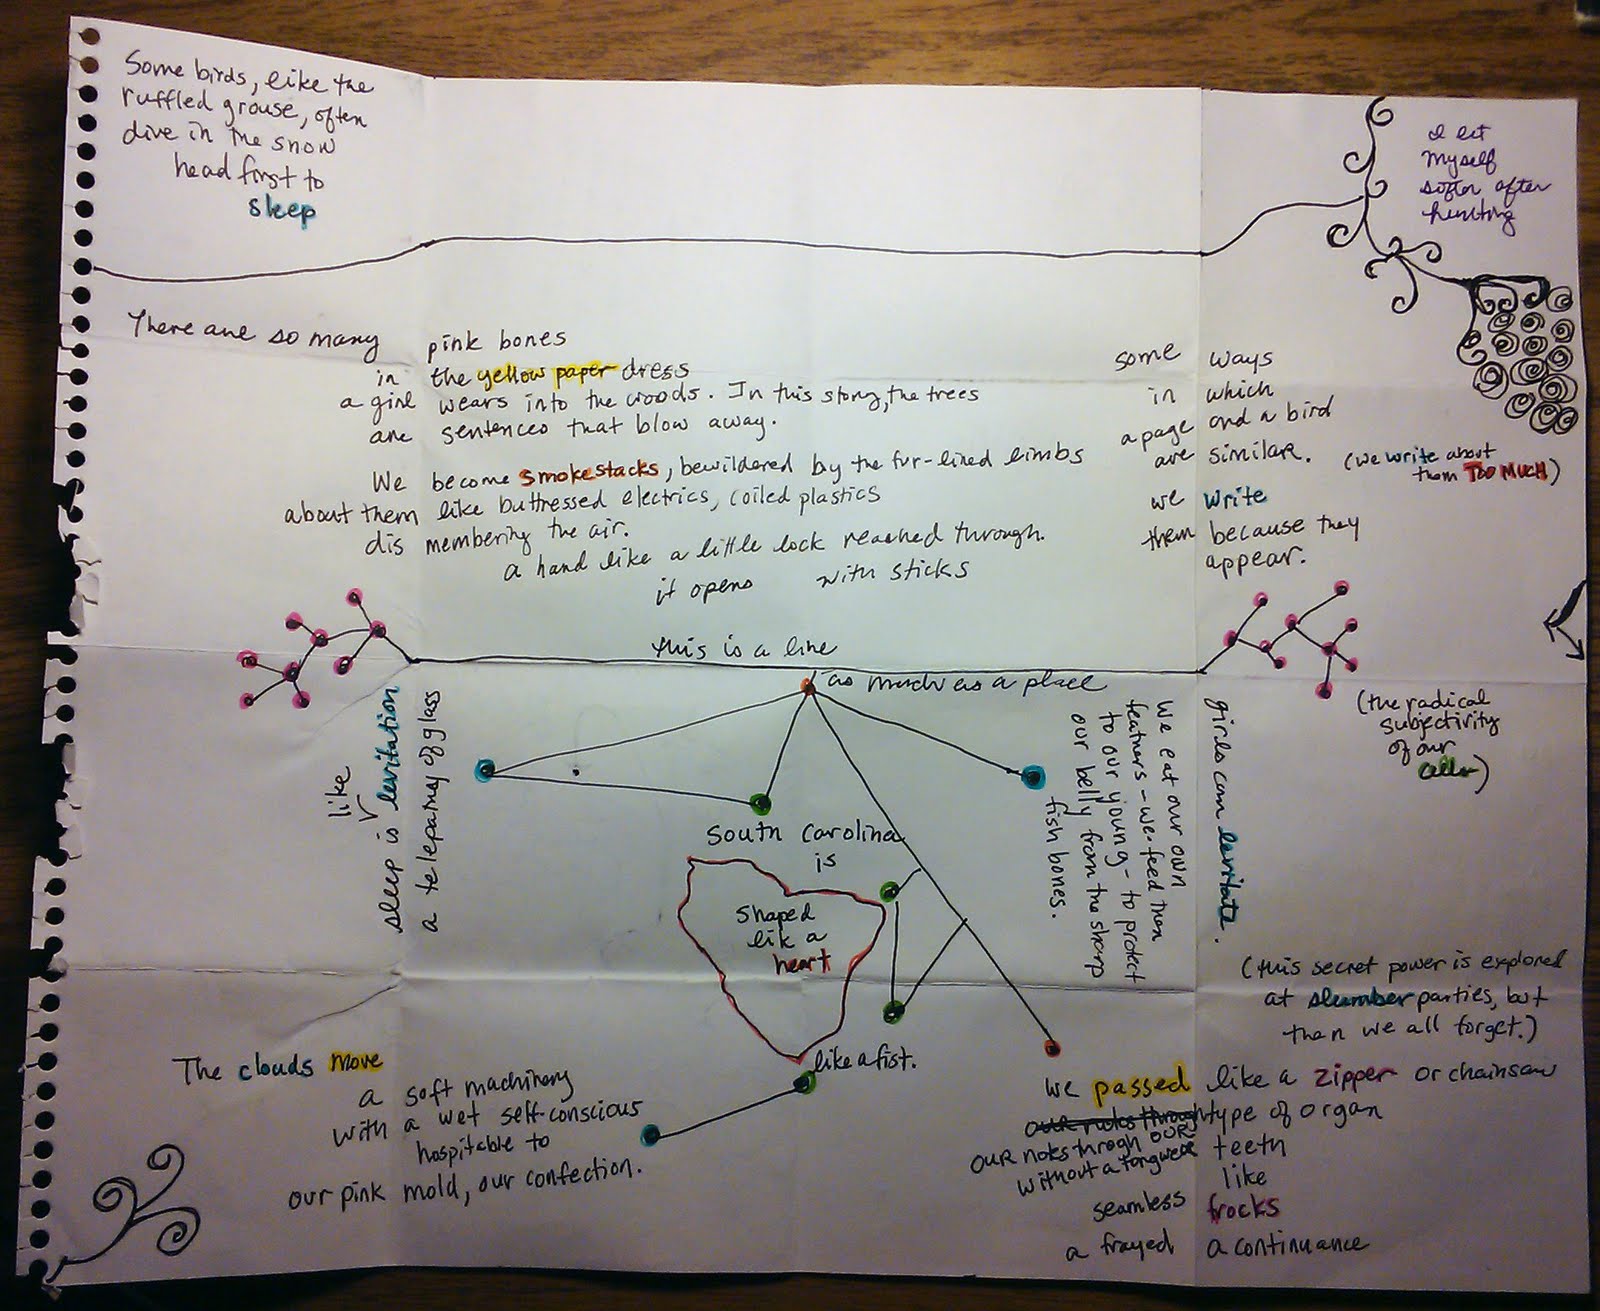 Some birds, like the
ruffled grouse, often
dive in the snow
head first to
sleep
I let
myself
soften after
hunting
There are so many pink bones
in the yellow paper dress
a girl wears into the woods. In this story, the trees
are sentences that blow away.
We become smokestacks, bewildered by the fur-lined limbs
about them like buttressed electrics, coiled plastics
dis membering the air.
a hand like a little lock reached through.
it opens with sticks
some ways
in which
a page and a bird
are similar.
(we write about
them TOO MUCH)
we write
them because they
appear.
this is a line
as much as a place
(the radical
subjectivity
of our
cells)
like
sleep is levitation
a telepathy of glass
South Carolina
is
shaped
lik a
heart
like a fist.
We eat our own
feathers - we feed them
to our young - to protect
our belly from the sharp
fish bones.
girls can levitate.
(this secret power is explored
at slumber parties, but
then we all forget.)
The clouds move
a soft machinery
with a wet self-conscious
hospitable to
our pink mold, our confection.
we passed like a zipper or chainsaw
our notes through type of organ
our notes through our teeth
without a tongue like
seamless frocks
a frayed a continuance